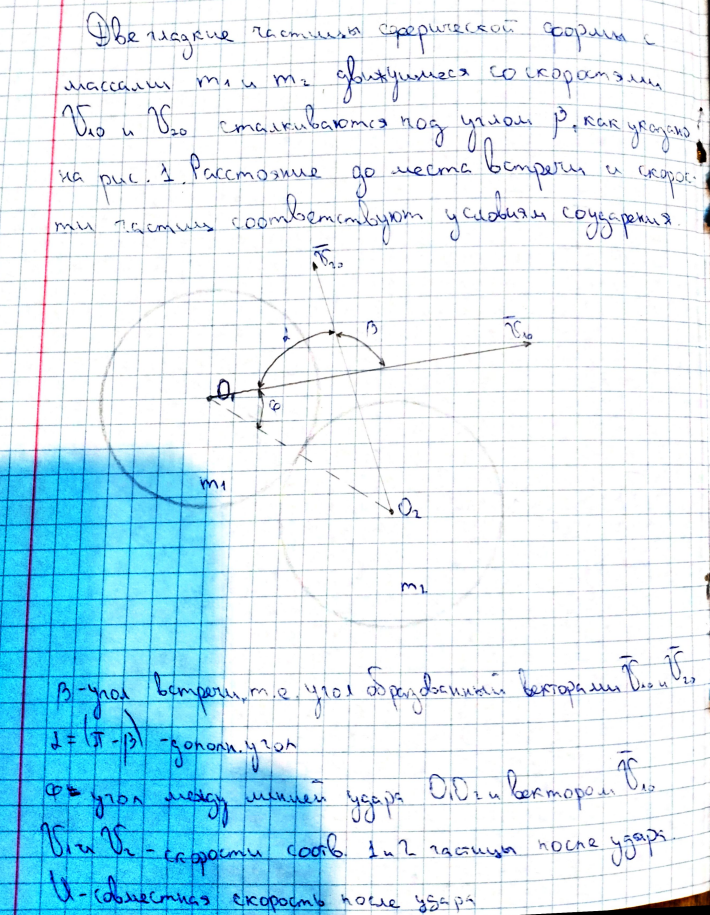 Две гладкие частицы сферической формы с
массами m1 и m2, движущиеся со скоростями
V̄10 и V̄20 сталкиваются под углом β, как указано
на рис. 1. Расстояние до места встречи и скорос-
ти частиц соответствуют условиям соударения.
V̄20
α
β
V̄10
O1
φ
m1
O2
m2
β - угол встречи, т.е. угол образованный векторами V̄10 и V̄20
α = (π - β) - дополн. угол
φ - угол между линией удара O1O2 и вектором V̄10
V1 и V2 - скорости соотв. 1 и 2 частицы после удара.
U - совместная скорость после удара